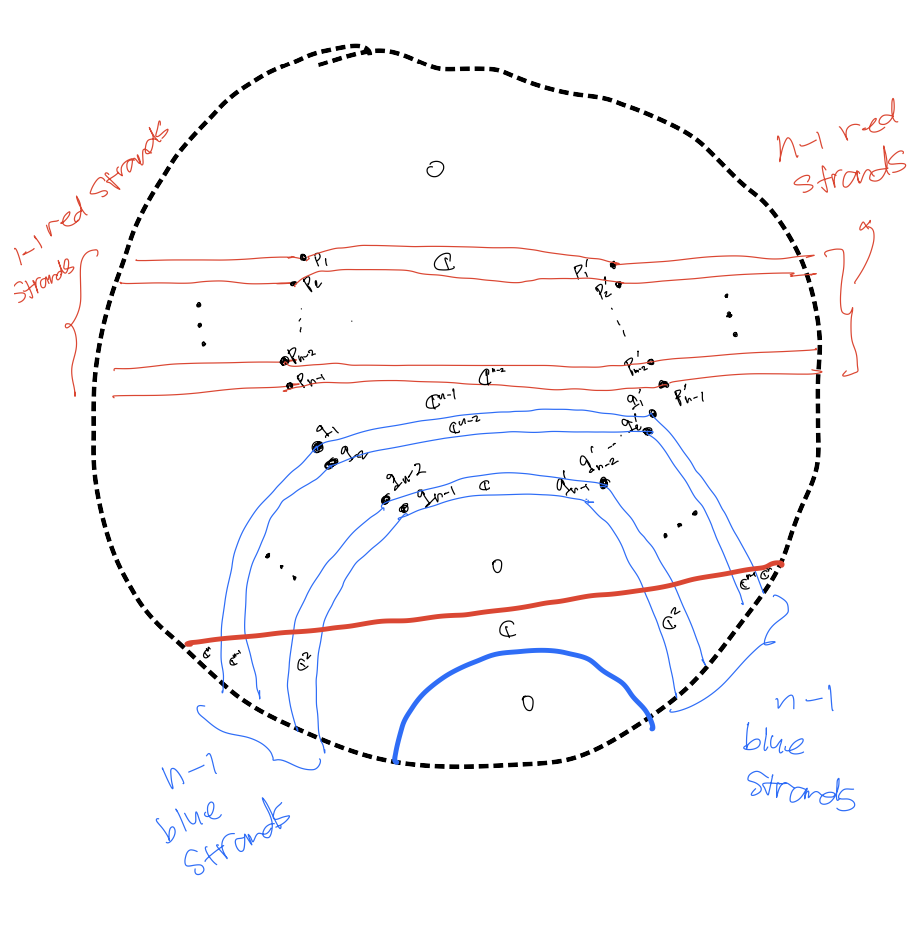 0
n-1 red
strands
1-1 red strands
strands
P₁
ℂ
P₁'
P₂
P₂'
Pₙ₋₂
ℂⁿ⁻²
Pₙ₋₂'
Pₙ₋₁
Pₙ₋₁'
ℂⁿ⁻¹
q₁'
q₁
ℂⁿ⁻²
q₂'
q₂
qₙ₋₂
q'ₙ₋₂
qₙ₋₁
ℂ
q'ₙ₋₁
0
ℂⁿ⁻¹
ℂⁿ
ℂ
ℂ²
ℂⁿ
ℂⁿ⁻¹
ℂ²
0
n-1
blue
strands
n-1
blue
strands